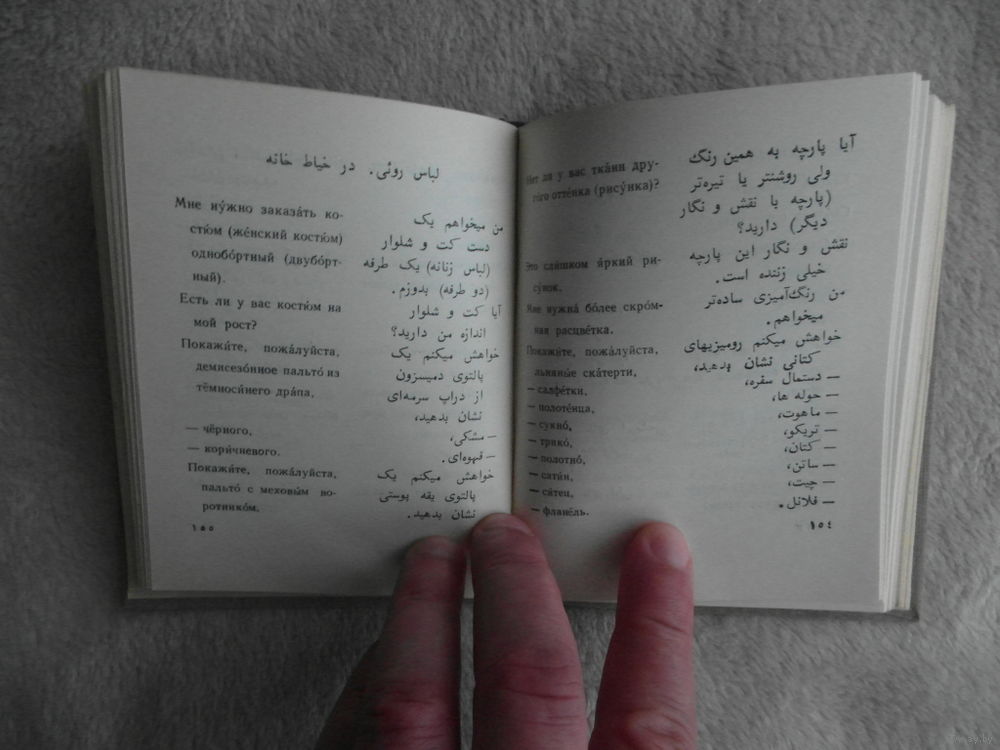 آیا پارچه به همین رنگ
ولی روشنتر یا تیره‌تر
(پارچه با نقش و نگار
دیگر) دارید؟
نقش و نگار این پارچه
خیلی زننده است.
من رنگ‌آمیزی ساده‌تر
میخواهم.
خواهش میکنم رومیزیهای
کتانی نشان بدهید،
— دستمال سفره،
— حوله ها،
— ماهوت،
— تریکو،
— کتان،
— ساتن،
— چیت،
— فلانل.
Нет ли у вас тка́ни дру-
гого отте́нка (рису́нка)?
Это сли́шком я́ркий ри-
су́нок.
Мне нужна́ бо́лее скро́м-
ная расцве́тка.
Покажи́те, пожа́луйста,
льняны́е ска́терти,
— салфе́тки,
— полоте́нца,
— сукно́,
— трико́,
— полотно́,
— сати́н,
— си́тец,
— флане́ль.
١٥٤
لباس روئی. در خیاط خانه
من میخواهم یک
دست کت و شلوار
(لباس زنانه) یک طرفه
(دو طرفه) بدوزم.
آیا کت و شلوار
اندازه من دارید؟
خواهش میکنم یک
پالتوی دمیسزون
از دراپ سرمه‌ای
نشان بدهید،
— مشکی،
— قهوه‌ای.
خواهش میکنم یک
پالتوی یقه پوستی
نشان بدهید.
Мне ну́жно заказа́ть ко-
стю́м (же́нский костю́м)
однобо́ртный (двубо́рт-
ный).
Есть ли у вас костю́м на
мой рост?
Покажи́те, пожа́луйста,
демисезо́нное пальто́ из
тёмноси́него дра́па,
— чёрного,
— кори́чневого.
Покажи́те, пожа́луйста,
пальто́ с меховы́м во-
ротнико́м.
١٥٥